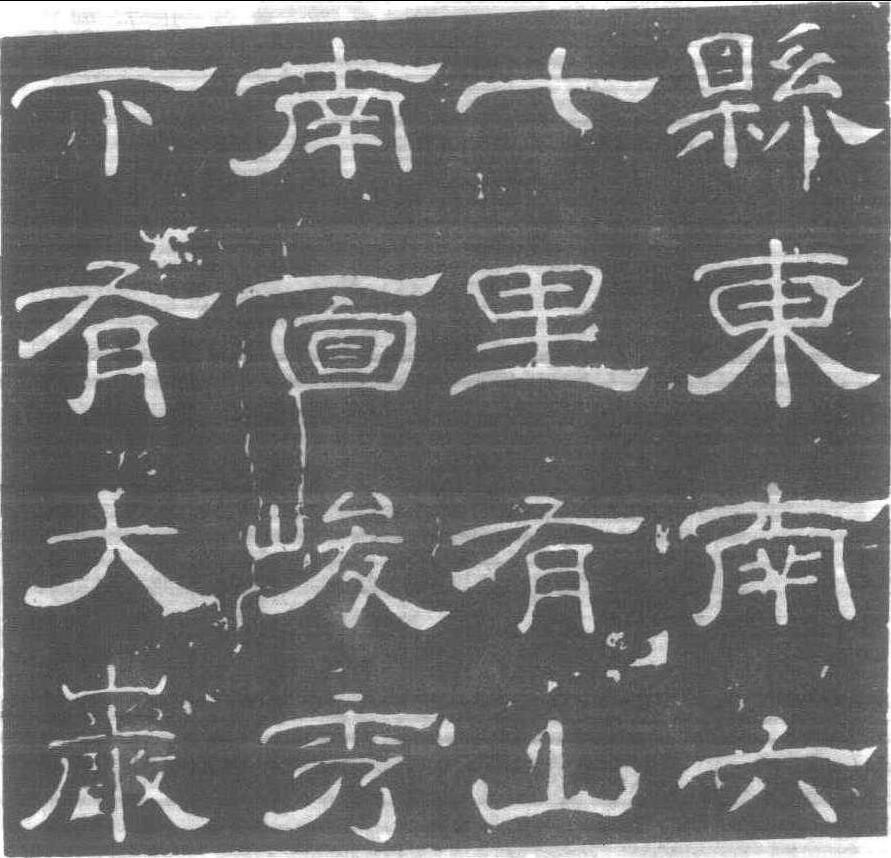 縣東南六
七里有山
南面峻秀
下有大巖